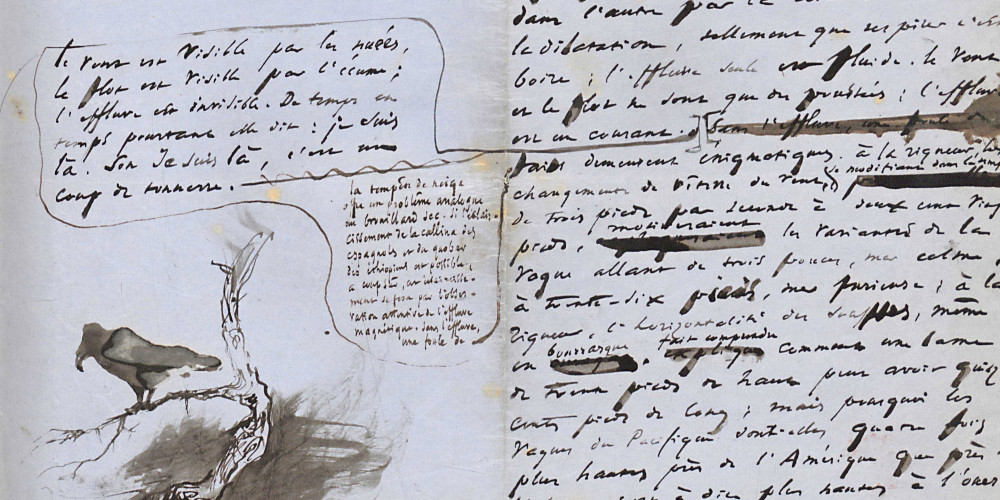 le vent est visible par les nuées,
le flot est visible par l'écume ;
l'effluve est invisible. De temps en
temps pourtant elle dit : je suis
là. Son Je suis là, c'est un
coup de tonnerre.
la tempête de neige
offre un problème analogue
au brouillard sec. Si l'éclair-
cissement de la callina des
espagnols et du quobar
des éthiopiens est possible,
à coup sûr, cet éclaircisse-
ment se fera par l'obser-
vation attentive de l'effluve
magnétique. Sans l'effluve,
une foule de
dans l'autre par la
la dilatation, tellement que respirer c'est
boire ; l'effluve seule est fluide. le vent
et le flot ne sont que des poussées ; l'effluve
est un courant. Sans l'effluve, une foule de
faits demeurent énigmatiques. à la rigueur les
se modifiant dans la
changements de vitesse du vent,
de trois pieds par seconde à deux cent vingt
motiveraient
pieds, les variantes de la
vague allant de trois pouces, mer calme,
à trente-six pieds, mer furieuse ; à la
rigueur, l'horizontalité des souffles, même
bourrasque fait comprendre
en comment une lame
de trente pieds de haut peut avoir quinze
cents pieds de long ; mais pourquoi les
vagues du Pacifique sont-elles quatre fois
plus hautes près de l'Amérique que près
plus hautes à l'ouest